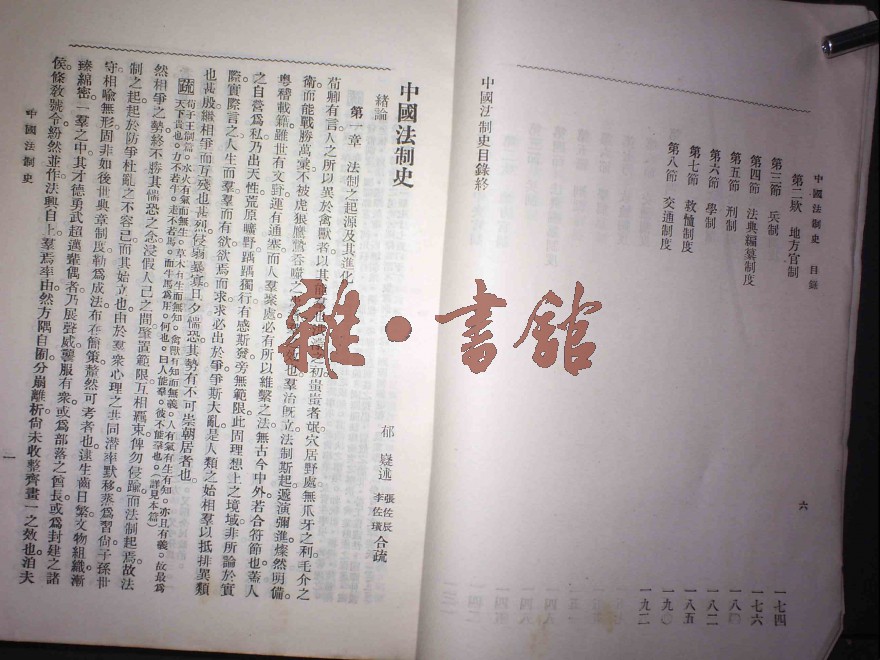 中國法制史 目錄
六
第二欵 地方官制
第三節 兵制 一七四
第四節 法典編纂制度 一七六
第五節 刑制 一八〇
第六節 學制 一八二
第七節 教恤制度 一八五
第八節 交通制度 一九〇
一九二
中國法制史目錄終
中國法制史
郁嶷述 張佐辰 李佐璜 合疏
緒論
第一章 法制之起源及其進化
荀卿有言人之所以異於禽獸者以其能
初蚩蚩者氓穴居野處無爪牙之利毛介之
衛而能戰勝萬彙不被虎狼鷹鸇吞噬之
也羣治旣立法制斯起遞演彌進燦然明備
粵稽載籍雖世有文野運有通塞而人羣聚處必有所以維繫之法無古今中外若合符節也蓋人
之自營爲私乃出天性荒原曠野踽踽獨行有感斯發旁無範限此固理想上之境域非所論於實
際實際言之人生而羣羣而有欲欲焉而求求必出於爭爭斯大亂是人類之始相羣以抵排異類
也甚殷繼相爭而互殘也甚烈侵弱暴寡日夕惴恐其勢有不可崇朝居者也
疏 荀子王制篇。水火有氣而無生。草木有生而無知。禽獸有知而無義。人有氣有生有知。亦且有義。故最爲
天下貴也。力不若牛。走不若馬。而牛馬爲用。何也。曰人能羣。彼不能羣也。(詳見本篇)
然相爭之勢終不勝其惴恐之念浸假人己之間肇置範限互相羈束俾勿侵踰而法制起焉故法
制之起起於防爭杜亂之不容已而其始立也由於羣衆心理之共同潜率默移蒸爲習尙子孫世
守相喩無形固非如後世典章制度勒爲成法布在簡策釐然可考者也逮生齒日繁文物組織漸
臻綿密一羣之中其才德勇武超邁輩偶者乃展聲威讋服有衆或爲部落之酋長或爲封建之諸
侯條敎號令紛然並作法興自上羣焉率由然方隅自囿分崩離析尙未收整齊畫一之效也洎夫
中國法制史
一
雜·書館